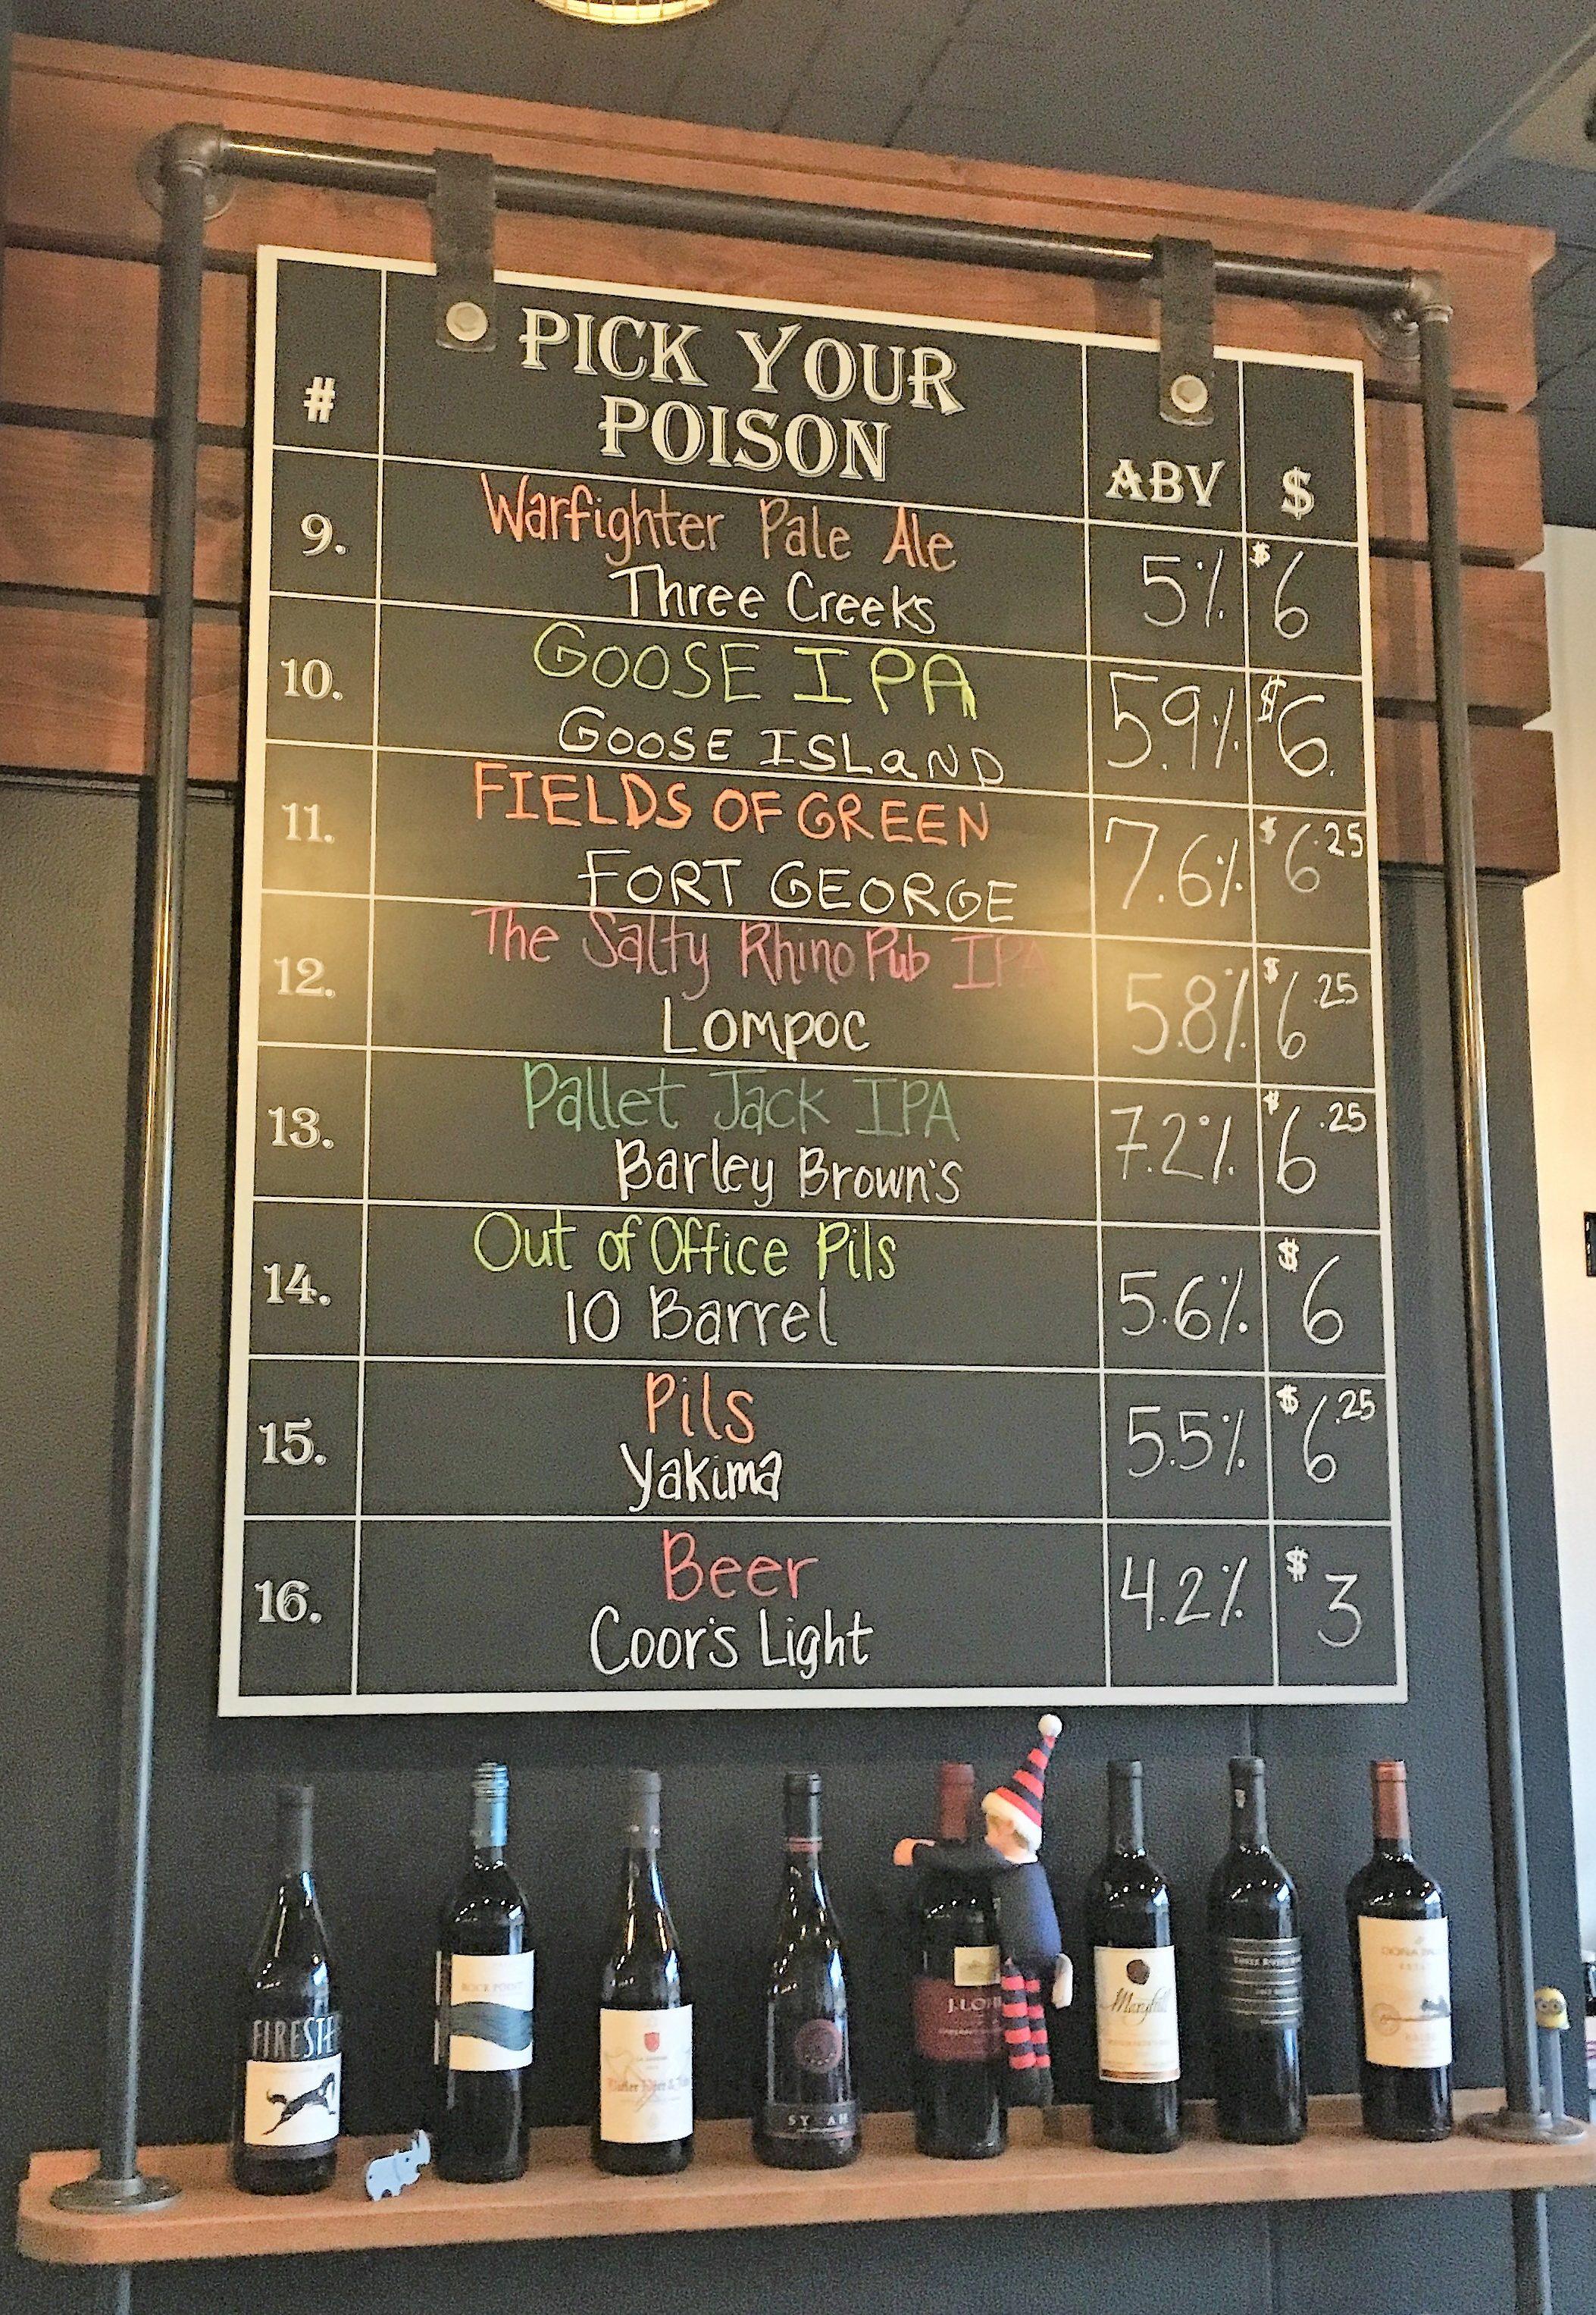 # PICK YOUR POISON ABV $
9. Warfighter Pale Ale 5% $6
Three Creeks
10. GOOSE IPA 5.9% $6.
GOOSE ISLaND
11. FIELDS OF GREEN 7.6% $6.25
FORT GEORGE
12. The Salty Rhino Pub IPA 5.8% $6.25
Lompoc
13. Pallet Jack IPA 7.2% $6.25
Barley Brown's
14. Out of Office Pils 5.6% $6
10 Barrel
15. Pils 5.5% $6.25
Yakima
16. Beer 4.2% $3
Coor's Light
FIRESTE
ROCK POINT
SYRAH
J. LOH
Maryhill